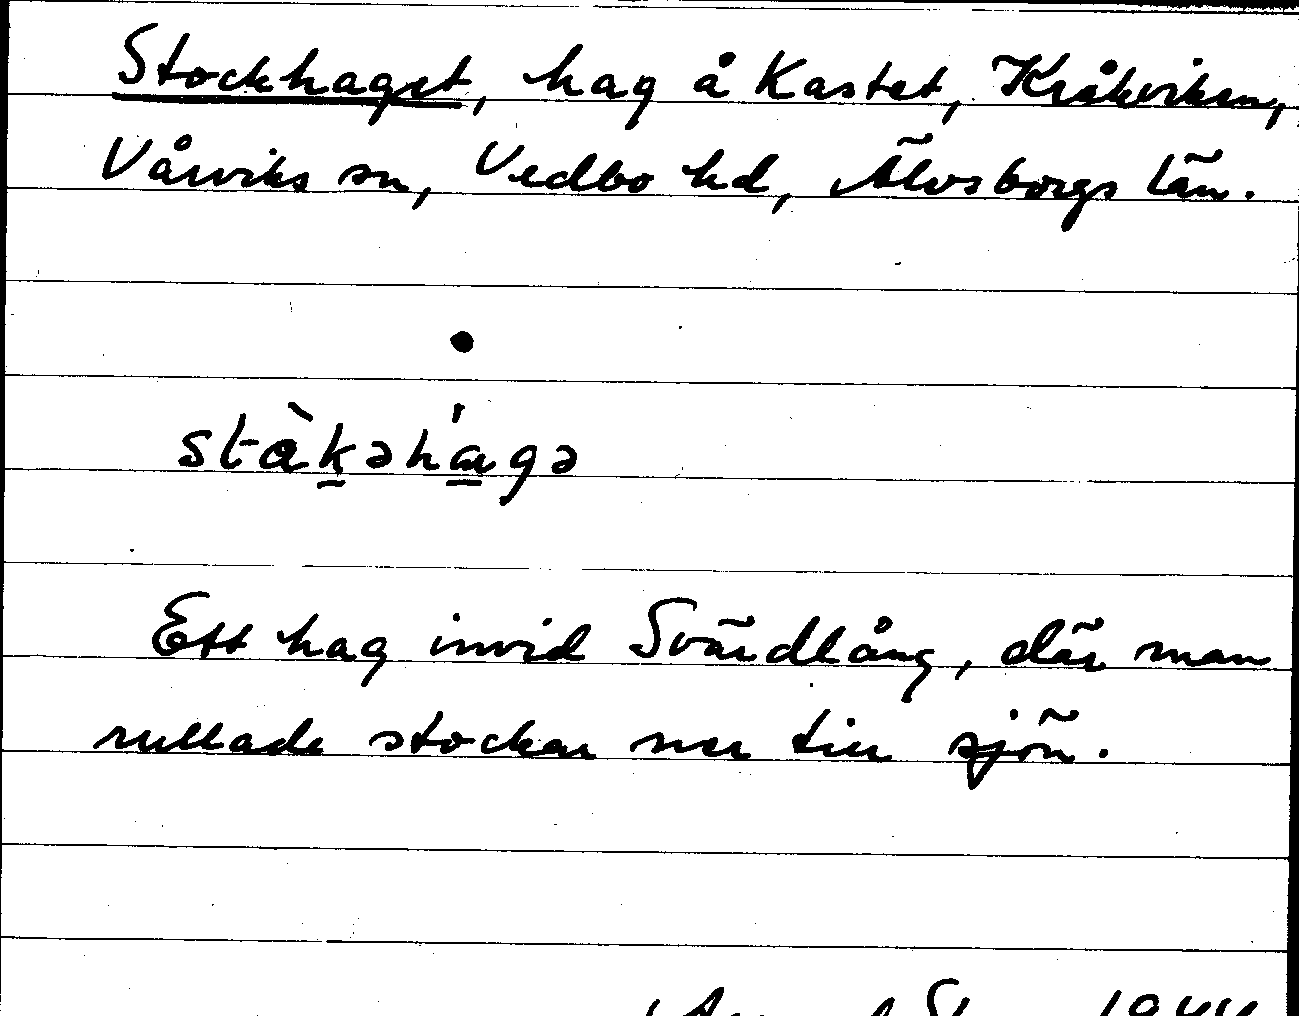 Stockhaget, hag å Kastet, Kråkviken,
Vårviks sn, Vedbo hd, Älvsborgs län.
stàkəhágə
Ett hag invid Svärdlång, där man
rullade stockar ner till sjön.
1944